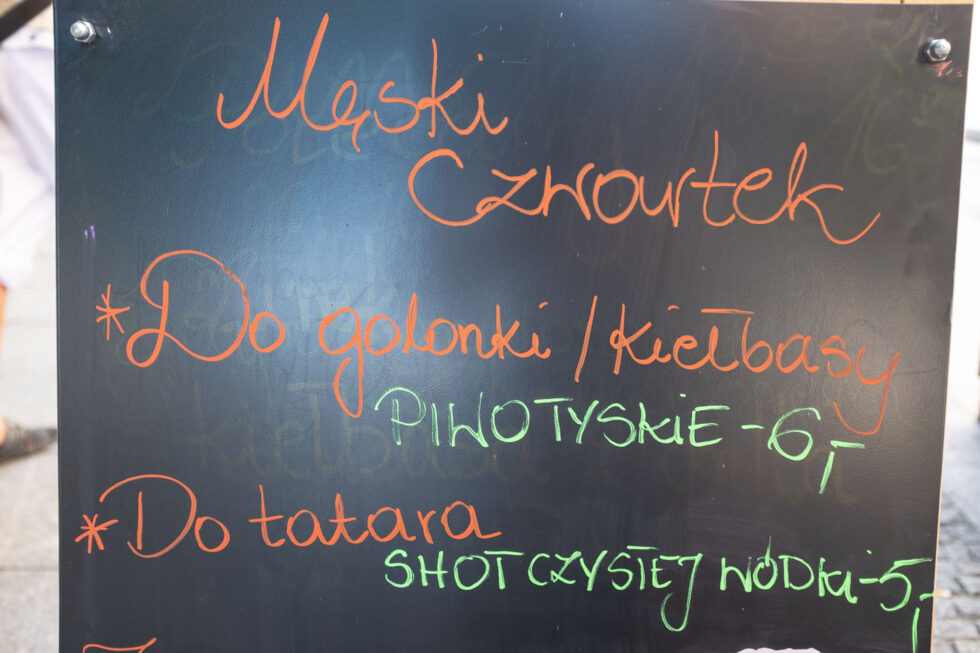 Męski
Czwartek
*Do golonki / kiełbasy
PIWO TYSKIE - 6,-
*Do tatara
SHOT CZYSTEJ WÓDKi - 5,-